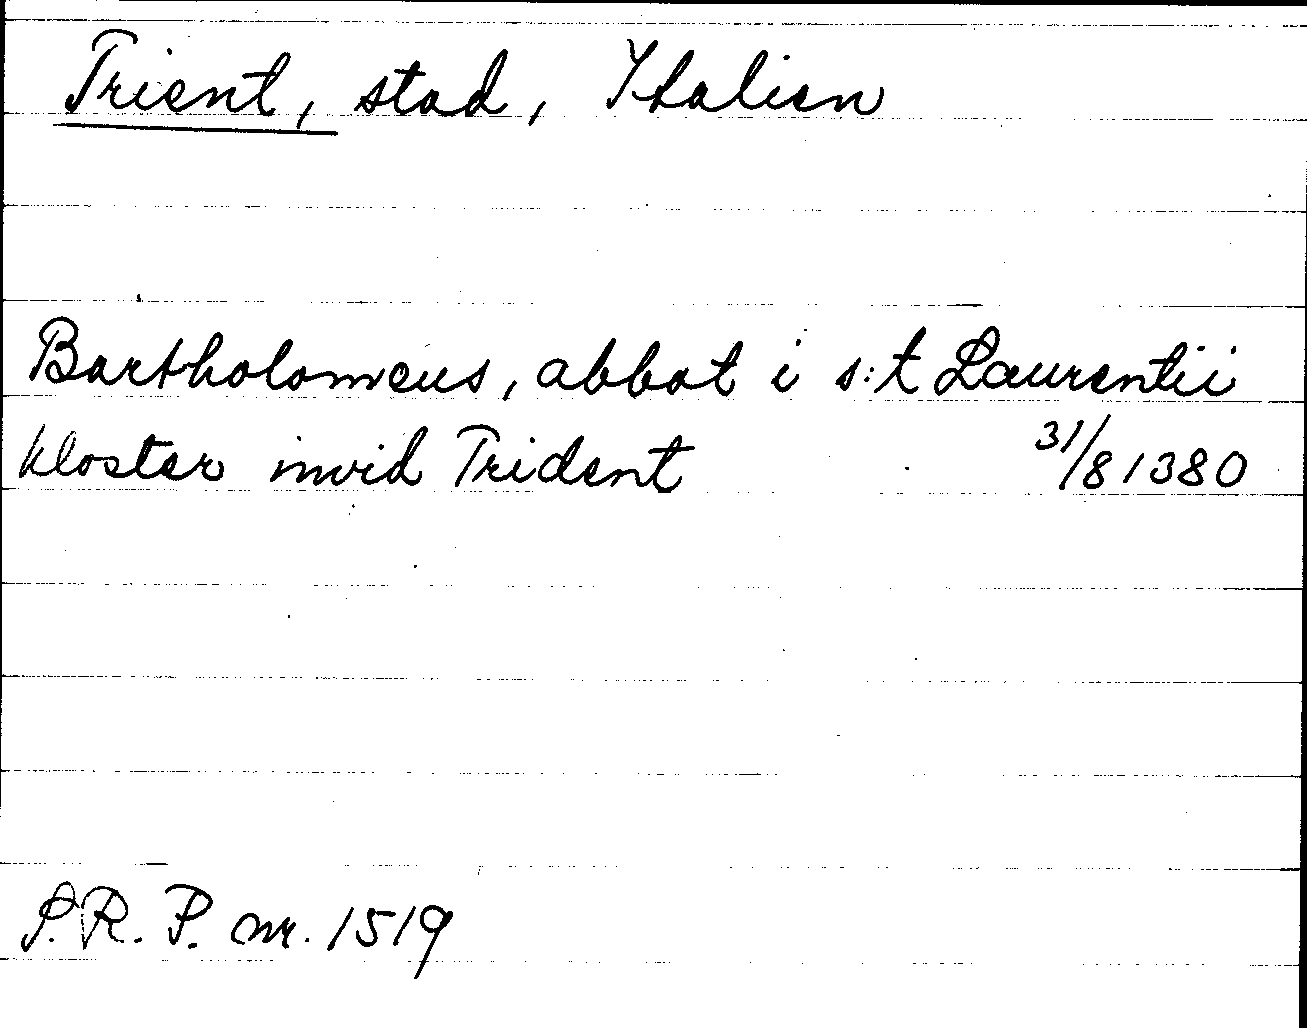 Trient, stad, Ithalien
Bartholomeus, abbot i s:t Laurentii
kloster invid Trident 31/8 1380
S.R.P. nr. 1519